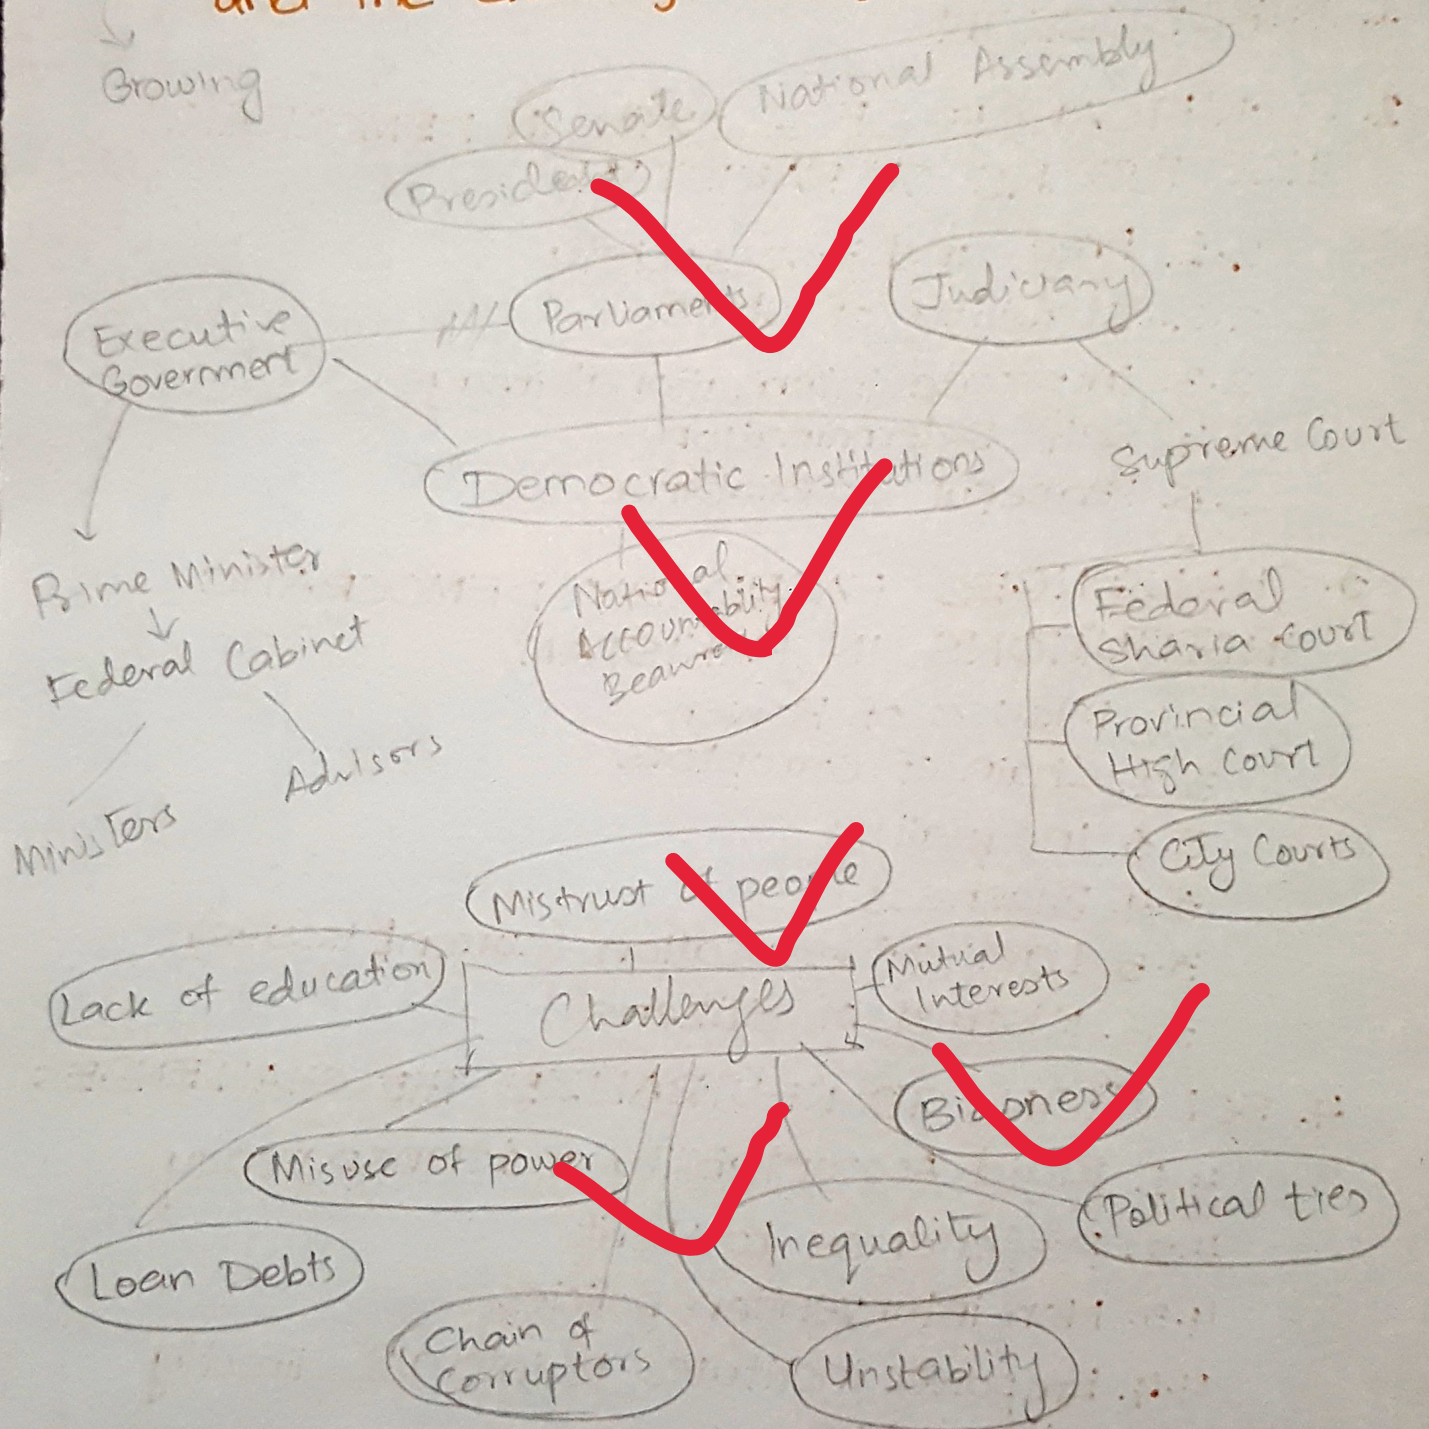 and the
Growing
Senate
National Assembly
President
Executive
Government
Parliaments
Judiciary
Democratic Institutions
Supreme Court
Prime Minister
Federal Cabinet
Ministers
Advisors
National
Accountability
Federal
Sharia Court
Provincial
High Court
City Courts
Mistrust of people
Lack of education
Challenges
Mutual
Interests
Biasness
Misuse of power
Political ties
Inequality
Loan Debts
Chain of
Corruptors
Unstability